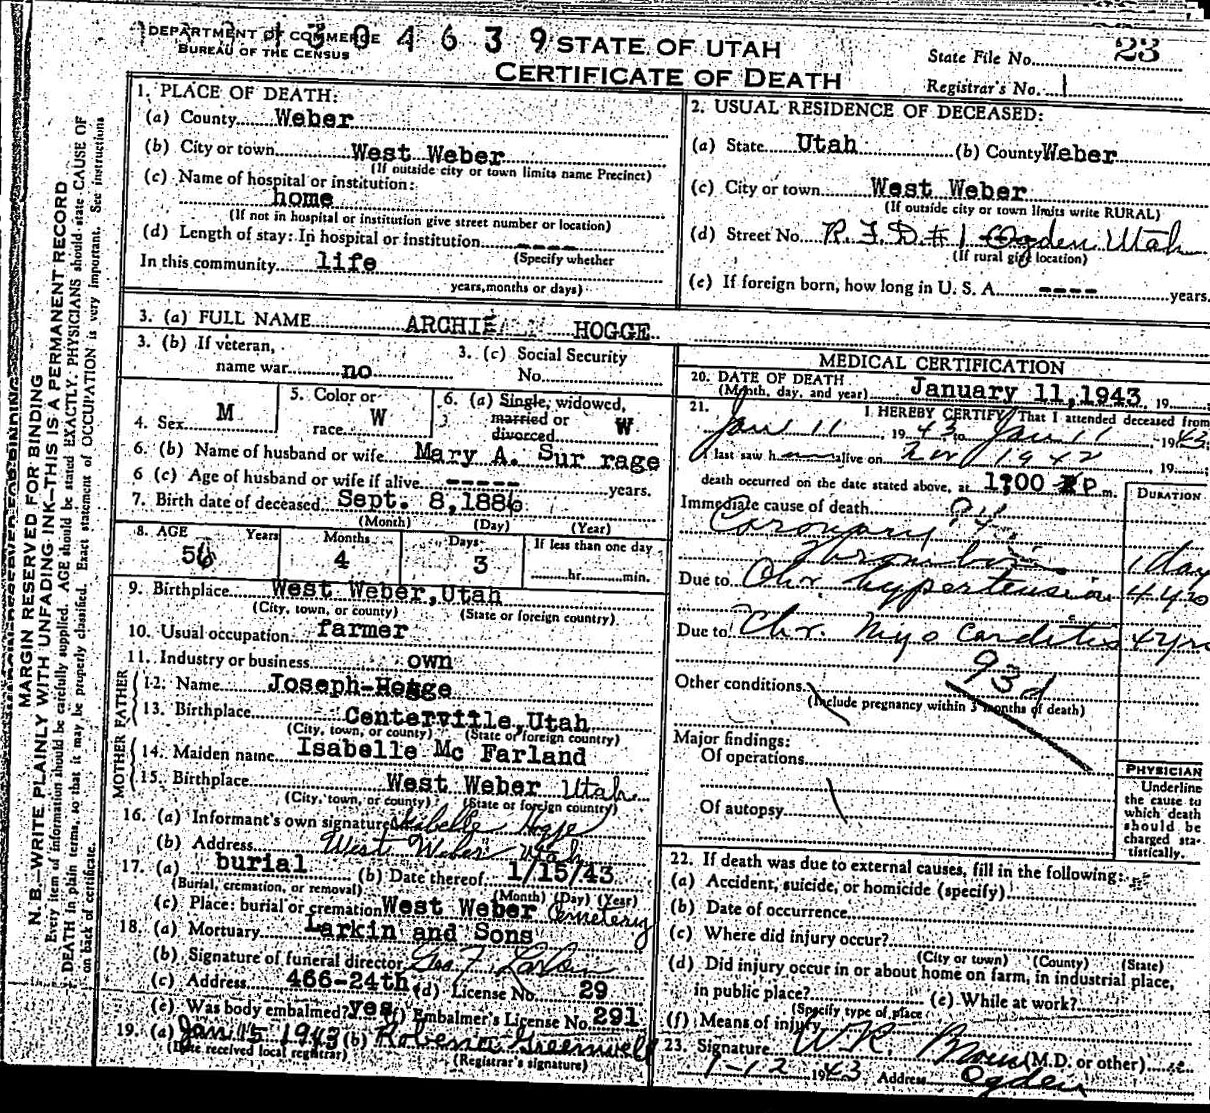 DEPARTMENT OF COMMERCE
BUREAU OF THE CENSUS
3 0 4 6 3 9
STATE OF UTAH
CERTIFICATE OF DEATH
State File No. 23
Registrar's No. 1
MARGIN RESERVED FOR BINDING
N. B.—WRITE PLAINLY WITH UNFADING INK—THIS IS A PERMANENT RECORD
Every item of information should be carefully supplied. AGE should be stated EXACTLY. PHYSICIANS should state CAUSE OF
DEATH in plain terms, so that it may be properly classified. Exact statement of OCCUPATION is very important. See instructions
on back of certificate.
1. PLACE OF DEATH:
(a) County Weber
(b) City or town West Weber
(If outside city or town limits name Precinct)
(c) Name of hospital or institution:
home
(If not in hospital or institution give street number or location)
(d) Length of stay: In hospital or institution ----
(Specify whether
In this community life
years, months or days)
2. USUAL RESIDENCE OF DECEASED:
(a) State Utah (b) County Weber
(c) City or town West Weber
(If outside city or town limits write RURAL)
(d) Street No. R.F.D. #1 - Ogden Utah
(If rural give location)
(e) If foreign born, how long in U. S. A. ---- years.
3. (a) FULL NAME ARCHIE HOGGE
3. (b) If veteran,
name war no
3. (c) Social Security
No.
4. Sex M
5. Color or
race W
6. (a) Single, widowed,
married or
divorced W
6. (b) Name of husband or wife Mary A. Sur rage
6 (c) Age of husband or wife if alive ----- years.
7. Birth date of deceased Sept. 8,1886
(Month) (Day) (Year)
8. AGE Years Months Days If less than one day
56 4 3 hr. min.
9. Birthplace West Weber,Utah
(City, town, or county) (State or foreign country)
10. Usual occupation farmer
11. Industry or business own
FATHER
12. Name Joseph-Hogge
13. Birthplace Centerville,Utah
(City, town, or county) (State or foreign country)
MOTHER
14. Maiden name Isabelle Mc Farland
15. Birthplace West Weber Utah
(City, town, or county) (State or foreign country)
16. (a) Informant's own signature Isabelle Hogge
(b) Address West Weber Utah
17. (a) burial (b) Date thereof 1/15/43
(Burial, cremation, or removal) (Month) (Day) (Year)
(c) Place: burial or cremation West Weber Cemetery
18. (a) Mortuary Larkin and Sons
(b) Signature of funeral director Geo. F. Larkin
(c) Address 466-24th (d) License No. 29
(e) Was body embalmed? yes (f) Embalmer's License No. 291
19. (a) Jan 15 1943 (b) Robena Greenwell
(Date received local registrar) (Registrar's signature)
MEDICAL CERTIFICATION
20. DATE OF DEATH
(Month, day, and year) January 11,1943 19
21. I HEREBY CERTIFY That I attended deceased from
Jan 11, 1943 to Jan 11, 1943;
I last saw h alive on Nov 1942, 19 ;
death occurred on the date stated above, at 1:00 P m.
DURATION
Immediate cause of death 94
Coronary
Thrombosis 1 day
Due to Chr hypertension 4 yrs
Due to Chr. Myo carditis 4 yrs
93d
Other conditions
(Include pregnancy within 3 months of death)
Major findings:
Of operations
Of autopsy
PHYSICIAN
Underline
the cause to
which death
should be
charged sta-
tistically.
22. If death was due to external causes, fill in the following:
(a) Accident, suicide, or homicide (specify)
(b) Date of occurrence
(c) Where did injury occur?
(City or town) (County) (State)
(d) Did injury occur in or about home on farm, in industrial place,
in public place? (e) While at work?
(Specify type of place
(f) Means of injury
23. Signature W R. Brown (M.D. or other)
1-12 1943 Address Ogden